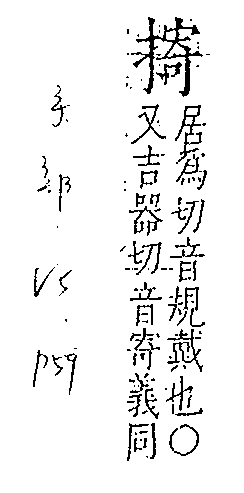 居爲切音規戴也〇
又吉器切音寄義同
手部.V5.P59